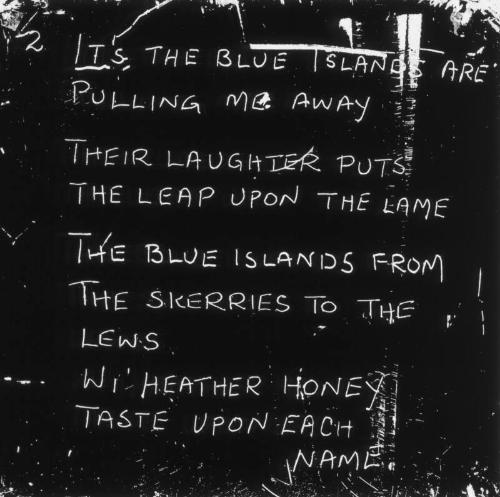 2 ITS THE BLUE ISLANDS ARE
PULLING ME AWAY
THEIR LAUGHTER PUTS
THE LEAP UPON THE LAME
THE BLUE ISLANDS FROM
THE SKERRIES TO THE
LEWS
WI' HEATHER HONEY
TASTE UPON EACH
NAME.